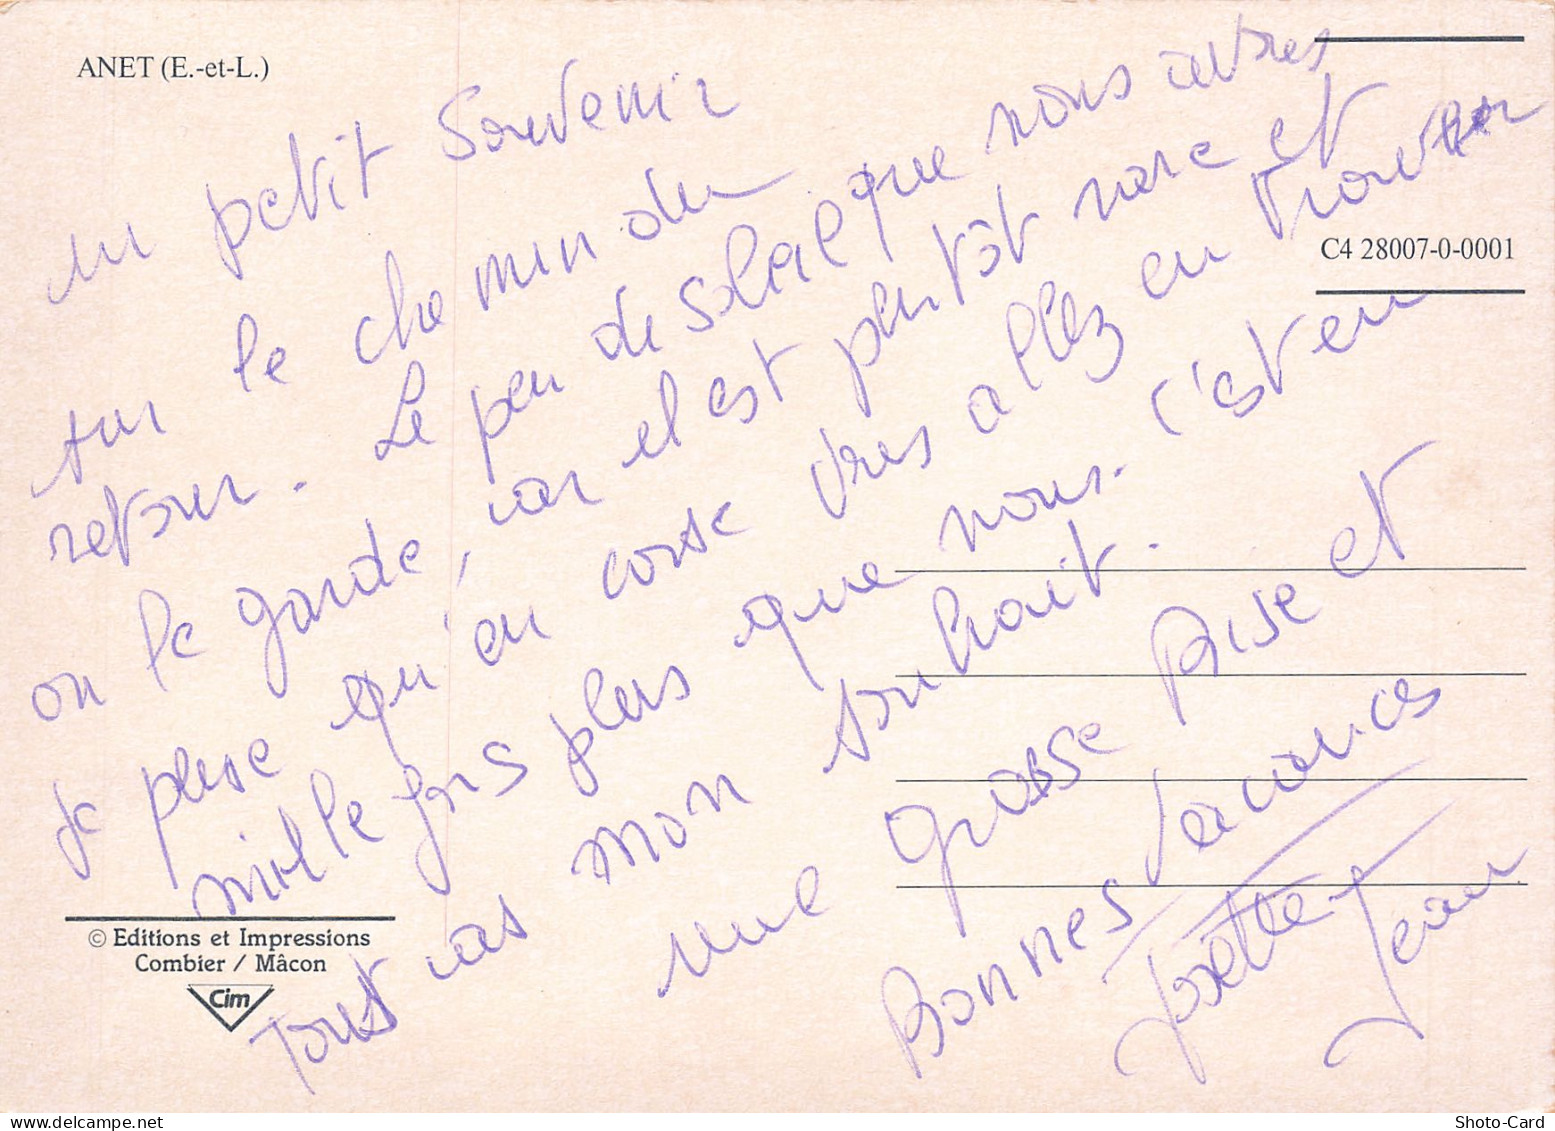 ANET (E.-et-L.)
un petit souvenir
sur le chemin du
retour. Le peu de soleil que nous avons
on le garde, car il est plutôt rare et
je pense qu'en corse vous allez en trouver
mille fois plus que nous. c'est en
Tout cas mon souhait.
une grosse Bise et
Bonnes vacances
Josette Jean
C4 28007-0-0001
© Editions et Impressions
Combier / Mâcon
Cim
delcampe.net
Shoto-Card